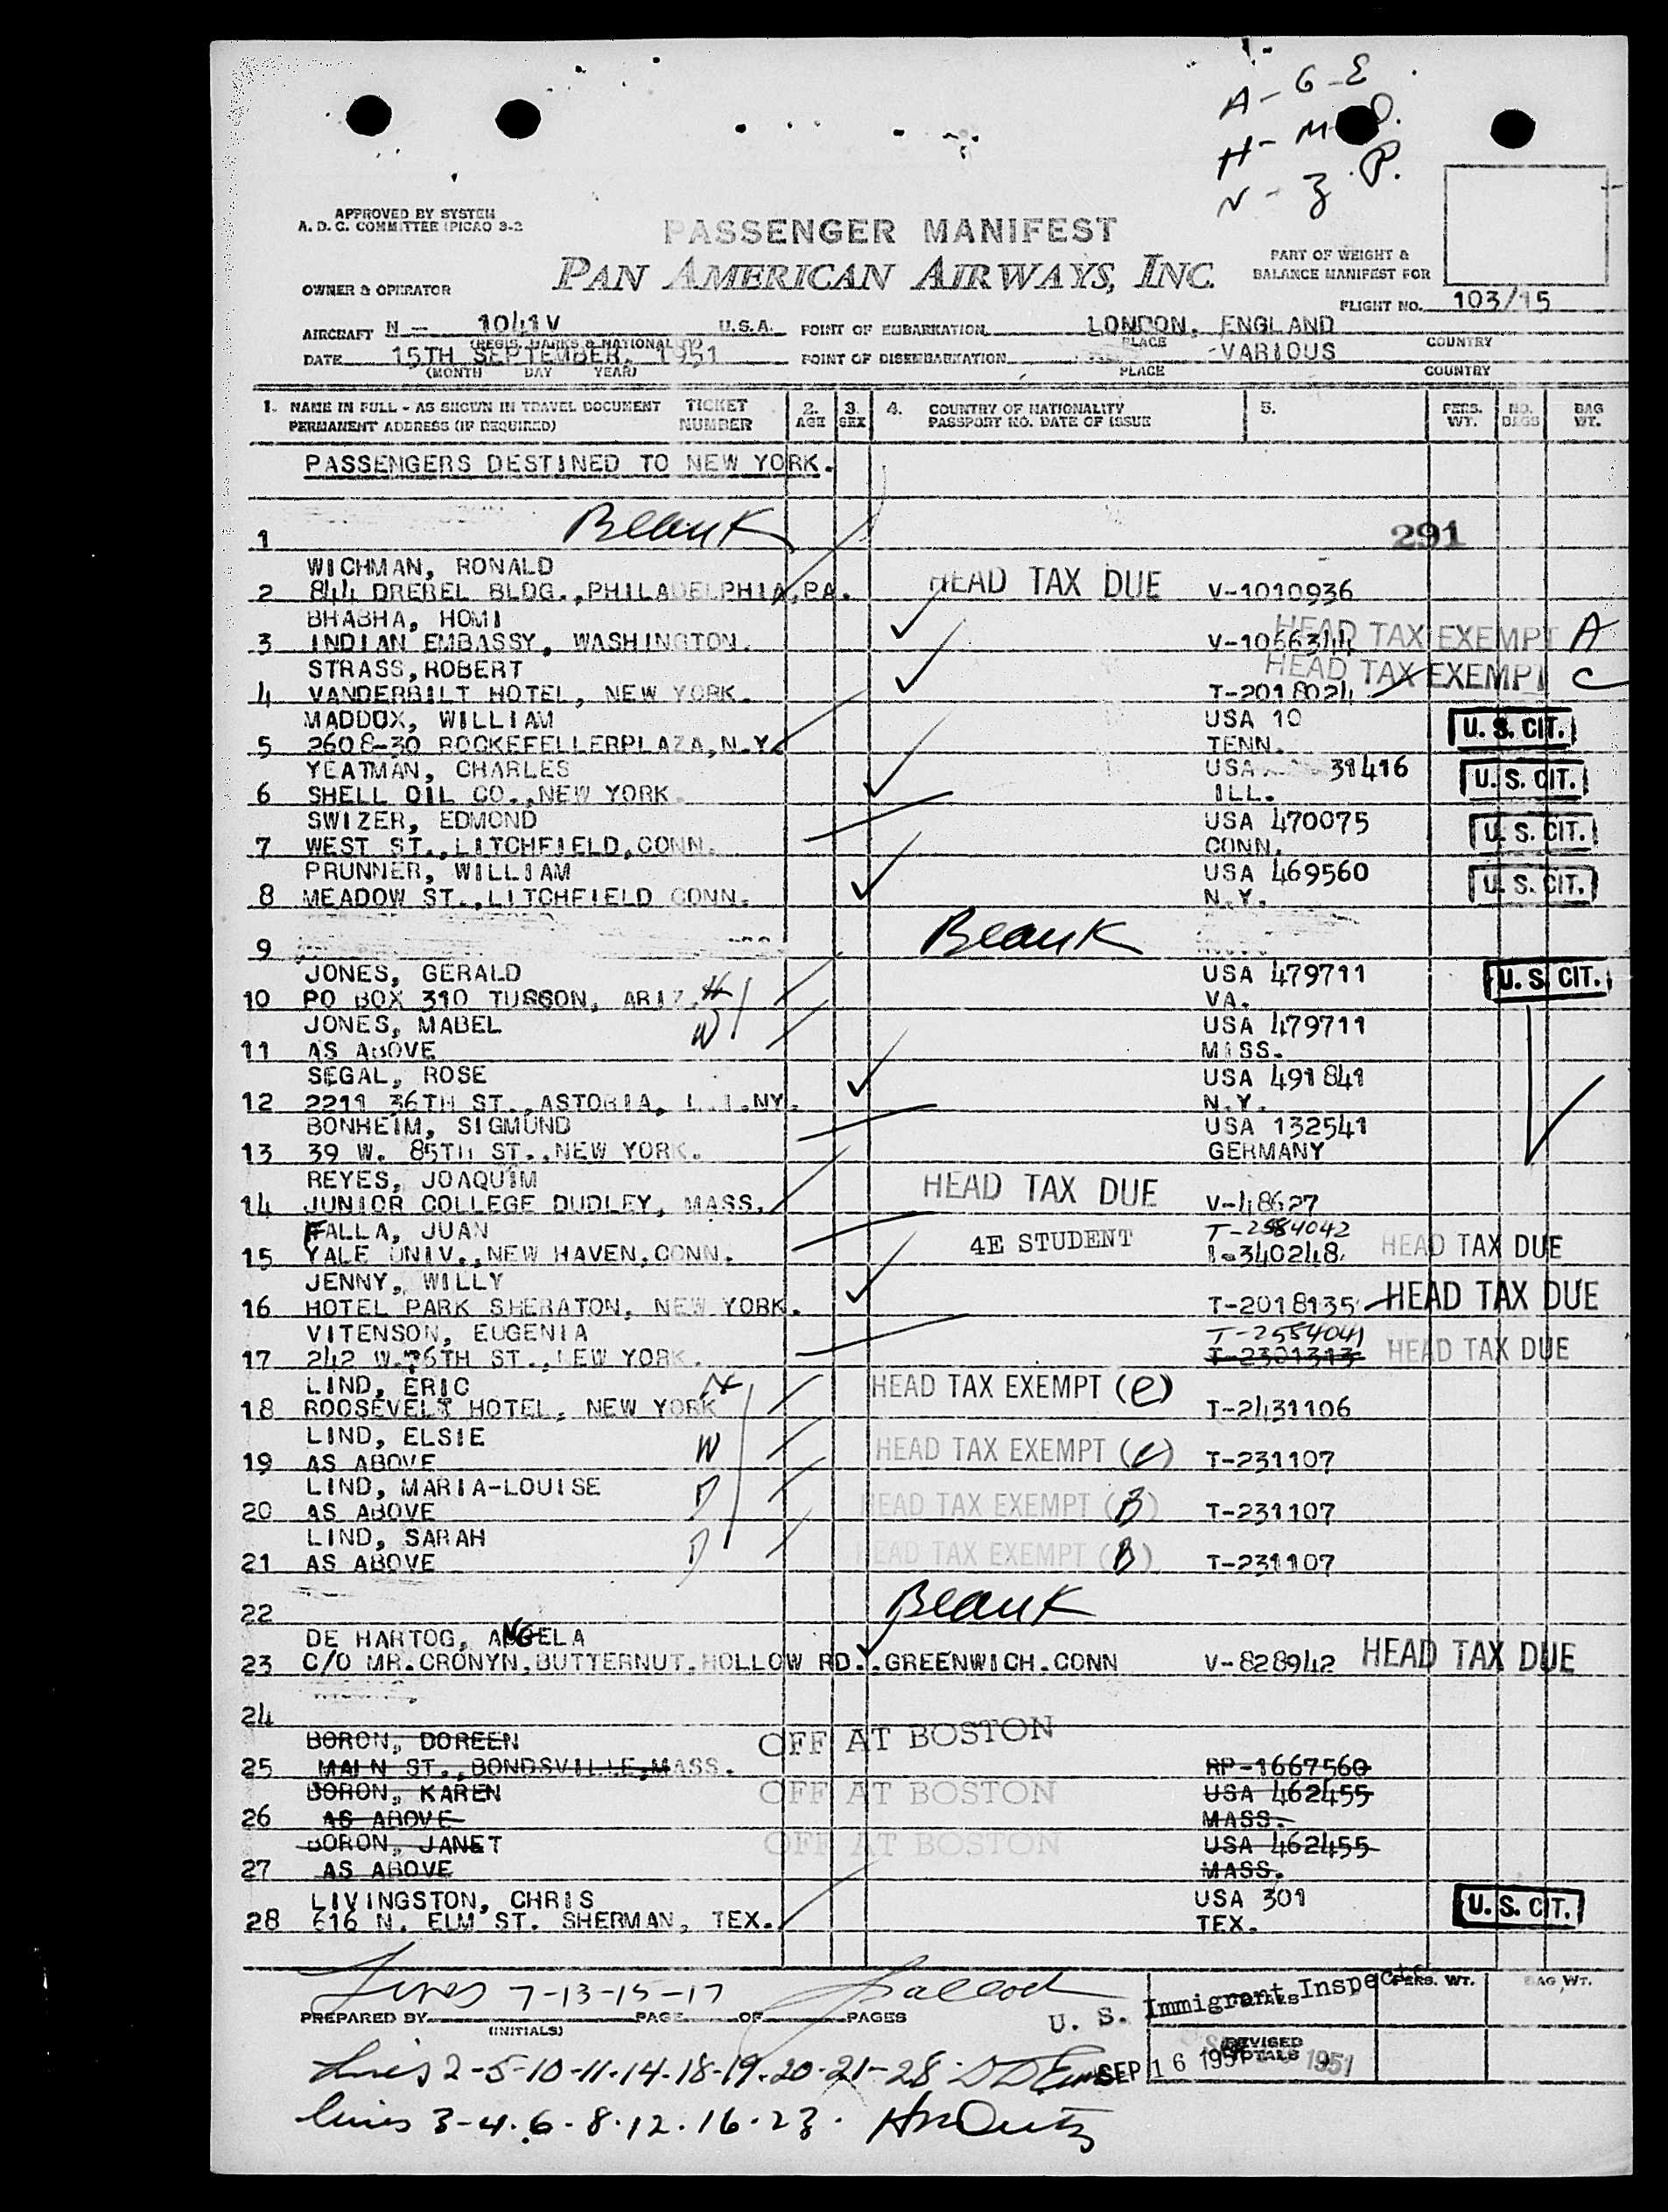 A - G - E
H - M - O.
N - Z. P.
APPROVED BY SYSTEM
A. D. C. COMMITTEE (PICAO 3-2
PASSENGER MANIFEST
PAN AMERICAN AIRWAYS, INC.
PART OF WEIGHT &
BALANCE MANIFEST FOR
OWNER & OPERATOR
FLIGHT NO. 103/15
AIRCRAFT N - 1041V U.S.A. POINT OF EMBARKATION LONDON, ENGLAND
(REGIS. MARKS & NATIONALITY) PLACE COUNTRY
DATE 15TH SEPTEMBER, 1951 POINT OF DISEMBARKATION -VARIOUS
(MONTH DAY YEAR) PLACE COUNTRY
1. NAME IN FULL - AS SHOWN IN TRAVEL DOCUMENT TICKET 2. 3. 4. COUNTRY OF NATIONALITY 5. PERS. NO. BAG
PERMANENT ADDRESS (IF REQUIRED) NUMBER AGE SEX PASSPORT NO. DATE OF ISSUE WT. BAGS WT.
PASSENGERS DESTINED TO NEW YORK.
1 Blank 291
WICHMAN, RONALD
2 844 DREBEL BLDG., PHILADELPHIA, PA. HEAD TAX DUE V-1010936
BHABHA, HOMI
3 INDIAN EMBASSY, WASHINGTON. V-1066344 HEAD TAX EXEMPT A
STRASS, ROBERT HEAD TAX EXEMPT C
4 VANDERBILT HOTEL, NEW YORK. T-2018024
MADDOX, WILLIAM USA 10 U. S. CIT.
5 2608-30 ROCKEFELLERPLAZA, N.Y. TENN.
YEATMAN, CHARLES USA 31416 U. S. CIT.
6 SHELL OIL CO., NEW YORK. ILL.
SWIZER, EDMOND USA 470075 U. S. CIT.
7 WEST ST., LITCHFIELD, CONN. CONN.
PRUNNER, WILLIAM USA 469560 U. S. CIT.
8 MEADOW ST., LITCHFIELD CONN. N.Y.
9 Blank
JONES, GERALD USA 479711 U. S. CIT.
10 PO BOX 310 TUSSON, ARIZ. H VA.
JONES, MABEL W USA 479711
11 AS ABOVE MISS.
SEGAL, ROSE USA 491841
12 2211 36TH ST., ASTORIA, L.I.NY. N.Y.
BONHEIM, SIGMUND USA 132541
13 39 W. 85TH ST., NEW YORK. GERMANY
REYES, JOAQUIM
14 JUNIOR COLLEGE DUDLEY, MASS. HEAD TAX DUE V-48627
FALLA, JUAN T-2584042
15 YALE UNIV., NEW HAVEN, CONN. 4E STUDENT I-340248 HEAD TAX DUE
JENNY, WILLY
16 HOTEL PARK SHERATON, NEW YORK. T-2018135 HEAD TAX DUE
VITENSON, EUGENIA T-2554041
17 242 W.76TH ST., NEW YORK. T-2301313 HEAD TAX DUE
LIND, ERIC H HEAD TAX EXEMPT (e)
18 ROOSEVELT HOTEL, NEW YORK T-2431106
LIND, ELSIE W HEAD TAX EXEMPT (e)
19 AS ABOVE T-231107
LIND, MARIA-LOUISE D HEAD TAX EXEMPT (B)
20 AS ABOVE T-231107
LIND, SARAH D HEAD TAX EXEMPT (B)
21 AS ABOVE T-231107
22 Blank
DE HARTOG, ANGELA
23 C/O MR.CRONYN, BUTTERNUT.HOLLOW RD., GREENWICH.CONN V-828942 HEAD TAX DUE
24
BORON, DOREEN OFF AT BOSTON
25 MAIN ST., BONDSVILLE, MASS. RP-1667560
BORON, KAREN OFF AT BOSTON USA 462455
26 AS ABOVE MASS.
BORON, JANET OFF AT BOSTON USA 462455
27 AS ABOVE MASS.
LIVINGSTON, CHRIS USA 301 U. S. CIT.
28 616 N. ELM ST. SHERMAN, TEX. TEX.
Lines 7-13-15-17
PREPARED BY PAGE OF PAGES
(INITIALS)
U. S. Immigrant Inspector
PERS. WT. BAG WT.
REVISED
TOTALS
SEP 16 1951 1951
Lines 2-5-10-11-14-18-19-20-21-28
lines 3-4.6-8.12.16.23.